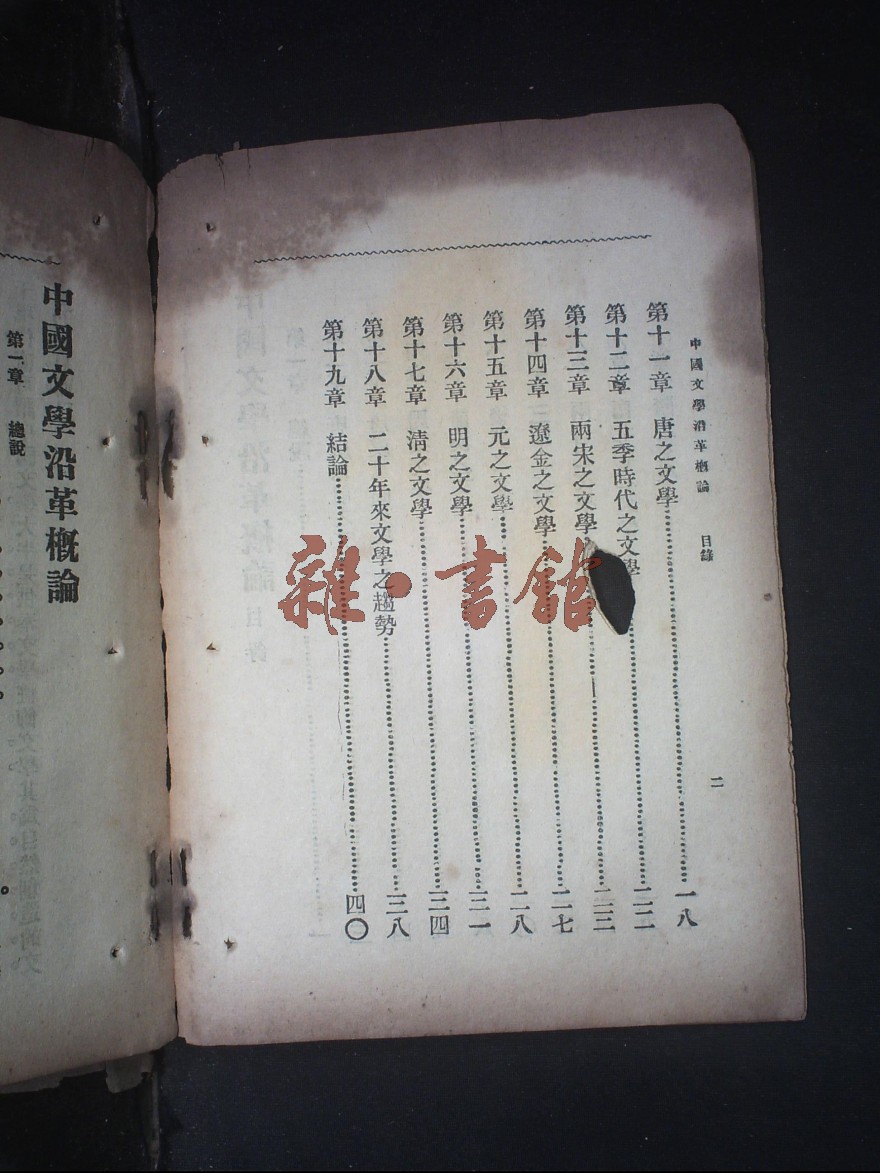 中國文學沿革概論　目錄
二
第十一章　唐之文學……一八
第十二章　五季時代之文學……二二
第十三章　兩宋之文學……二三
第十四章　遼金之文學……二七
第十五章　元之文學……二八
第十六章　明之文學……三一
第十七章　清之文學……三四
第十八章　二十年來文學之趨勢……三八
第十九章　結論……四〇
雜·書館
中國文學沿革概論
第一章　總說